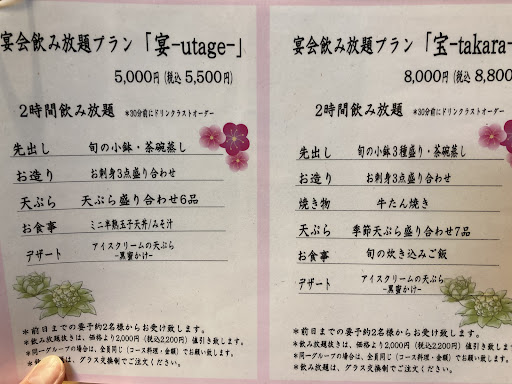 宴会飲み放題プラン「宴-utage-」
5,000円(税込 5,500円)
2時間飲み放題 *30分前にドリンクラストオーダー
先出し 旬の小鉢・茶碗蒸し
お造り お刺身3点盛り合わせ
天ぷら 天ぷら盛り合わせ6品
お食事 ミニ半熟玉子天丼/みそ汁
デザート アイスクリームの天ぷら
-黒蜜かけ-
*前日までの要予約2名様からお受け致します。
*飲み放題抜きは、価格より2,000円(税込2,200円)値引き致します。
*同一グループの場合は、全員同じ(コース料理・金額)でお願い致します。
は、グラス交換制でご注文ください。
宴会飲み放題プラン「宝-takara-
8,000円(税込 8,800
2時間飲み放題 *30分前にドリンクラストオーダー
先出し 旬の小鉢3種盛り・茶碗蒸し
お造り お刺身3点盛り合わせ
焼き物 牛たん焼き
天ぷら 季節天ぷら盛り合わせ7品
お食事 旬の炊き込みご飯
デザート アイスクリームの天ぷら
-黒蜜かけ-
*前日までの要予約2名様からお受け致します。
*飲み放題抜きは、価格より2,000円(税込2,200円)値引き致しま
*同一グループの場合は、全員同じ(コース料理・金額)でお願い致し
*飲み放題は、グラス交換制でご注文ください。